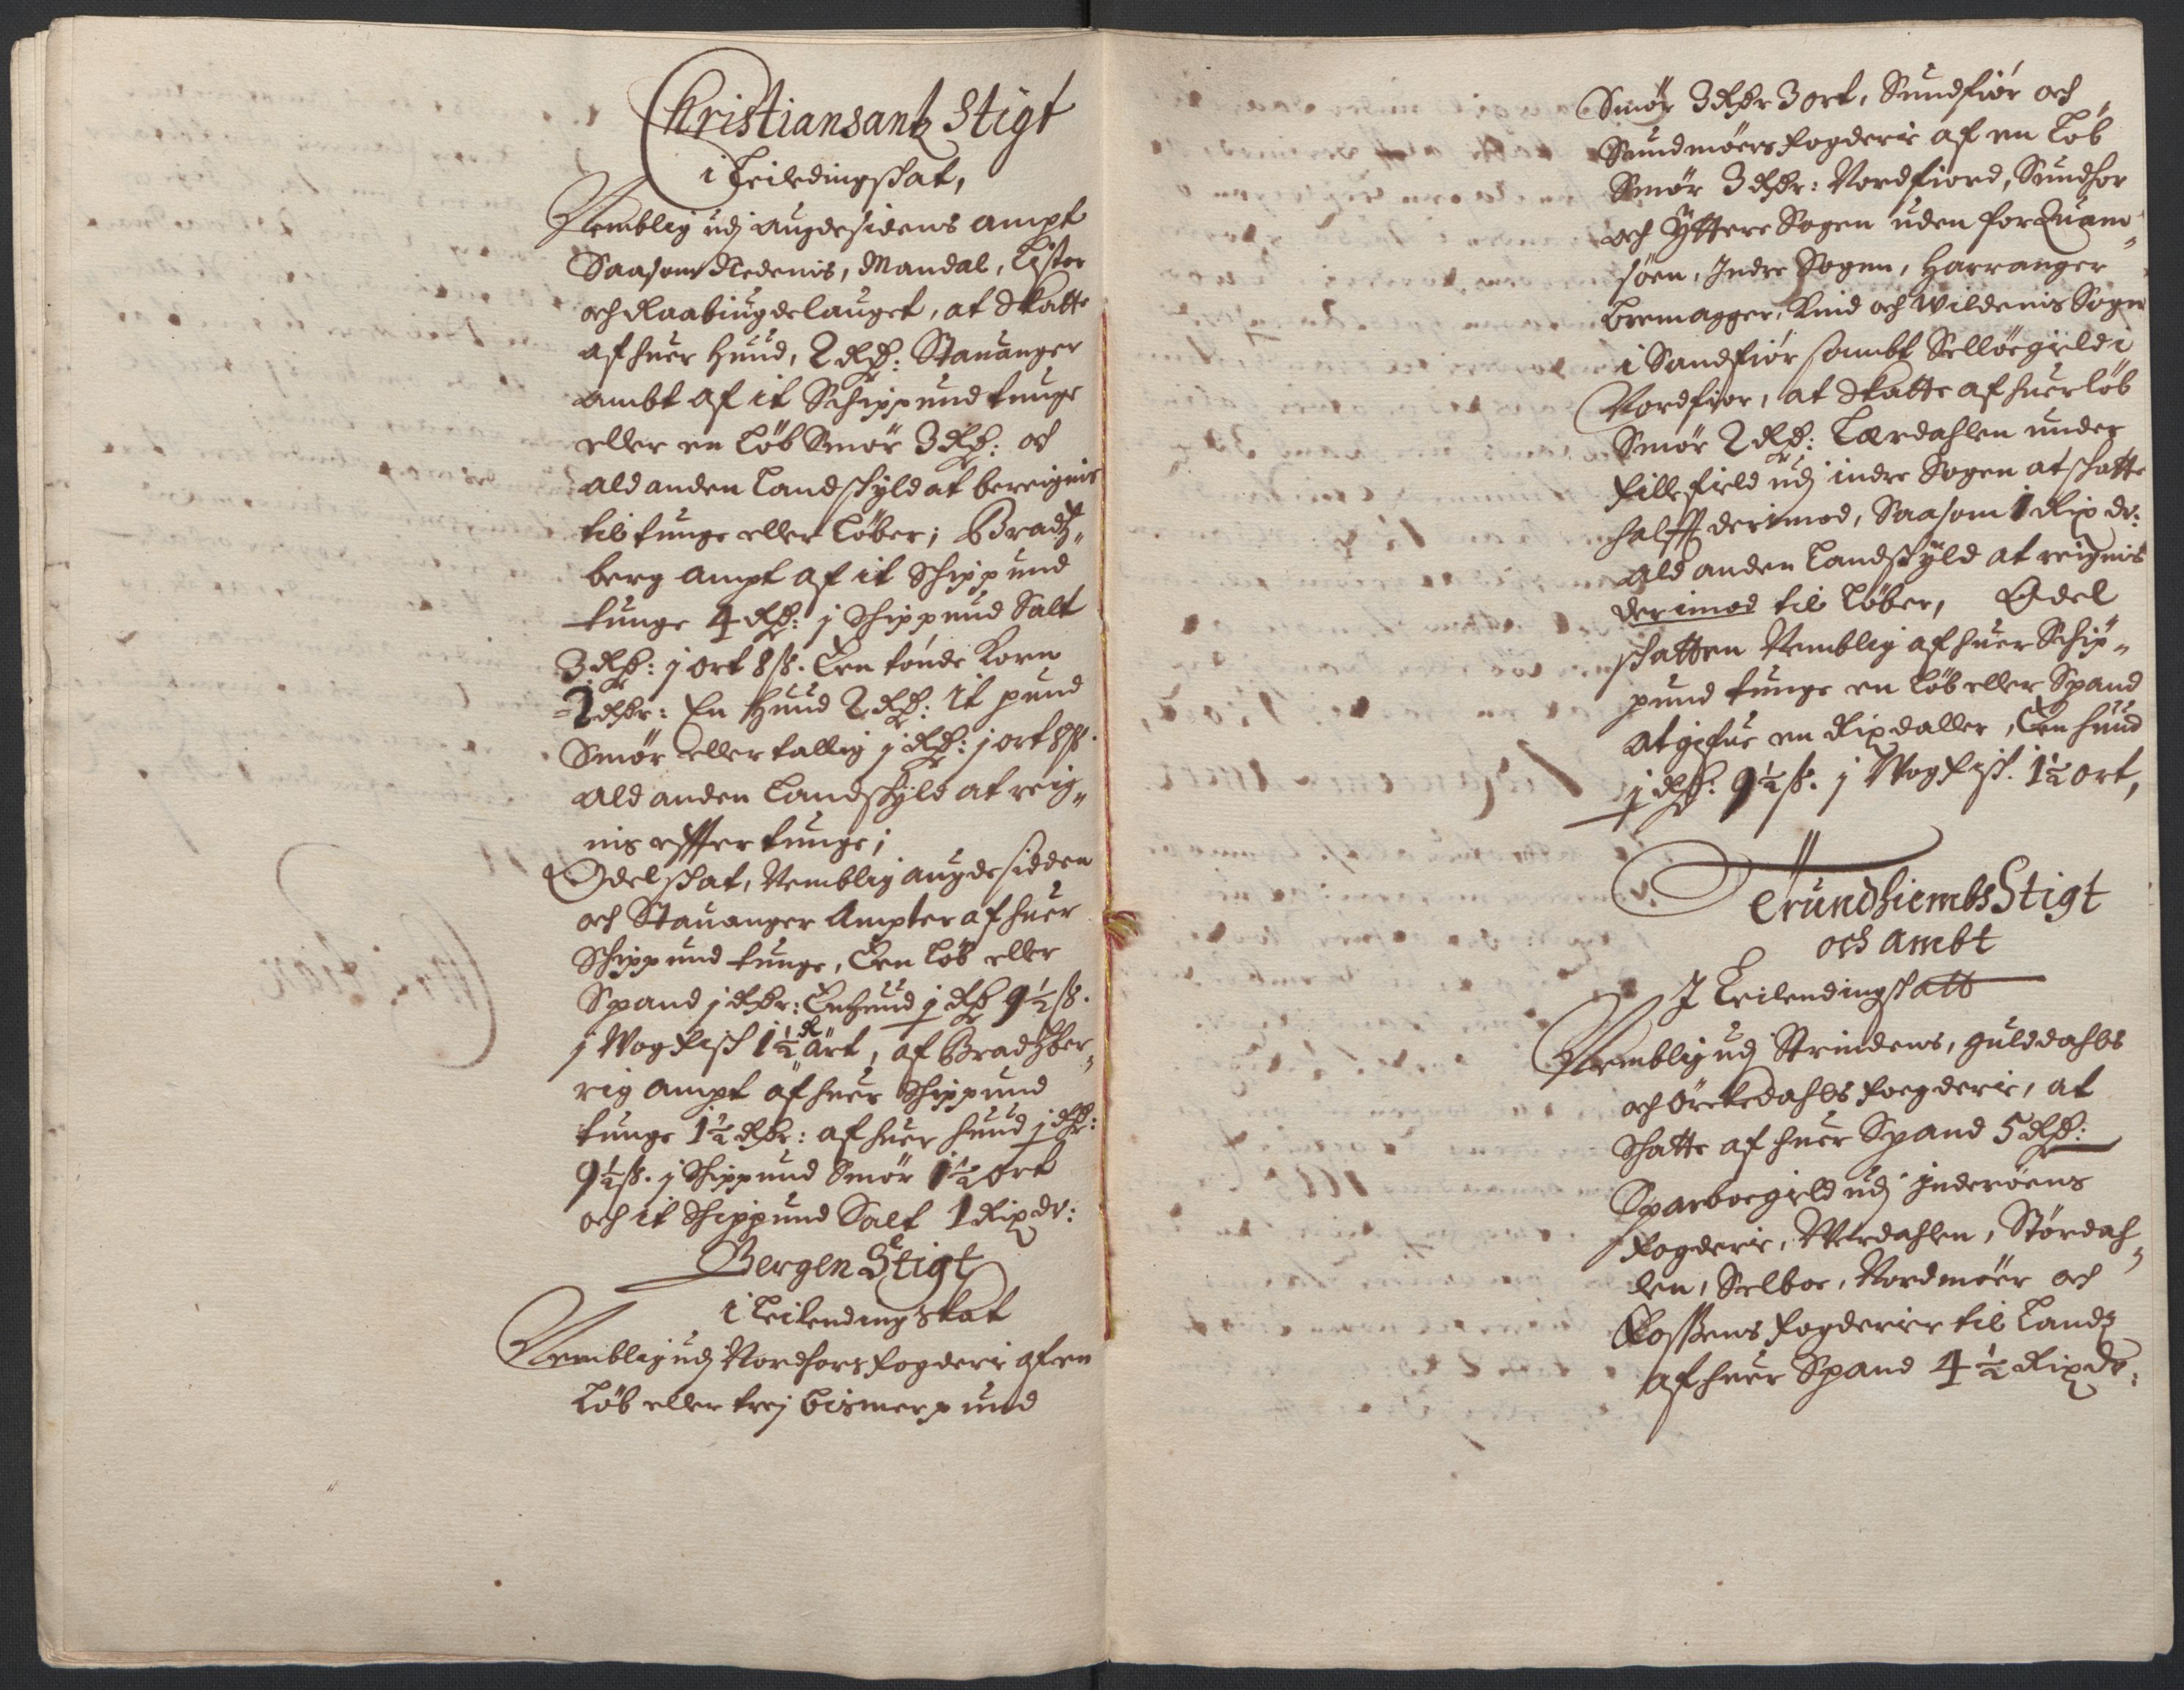 Christiansantz Stigt
i Leiledingschat,
Nemblig udj augdesidens ampt
Saasom Nedenis, Mandal, Lister
och Raabiugdelauget, at Skatte
af huer Huud, 2 Rdr: Stauanger
ambt af it Schippund tunge
eller en Løb Smør 3 Rdr: och
ald anden Landschyld at bereignis
til tunge eller Løber; Bradtz„
berg ampt af it Schippund
tunge 4 Rdr: j Schippund Salt
3 Rdr: j ort 8 ß. Een tønde Korn
2 Rdr: En Huud 2 Rdr: it pund
Smør eller tallig j Rdr: j ort 8 ß.
Ald anden Landschyld at reig„
nis effter tunge;
Odelschat, Nemblig augdesidden
och Stauanger Ampter af huer
Schippund tunge, Een Løb eller
Spand j Rdr: En huud j Rdr 9½ ß.
j Wog Fisch 1½ ort, af Bradtzber„
rig ampt af huer Schippund
tunge 1½ Rdr: af huer huud j Rdr:
9½ ß. j Schippund Smør 1½ ort
och it Schippund Salt 1 Rixdr:
Bergen Stigt
i Leilendingskat
Nemblig udj Nordhors fogderi af en
Løb eller trej bismerpund
Smør 3 Rdr 3 ort, Sundfiør och
Sundmøers fogderie af en Løb
Smør 3 Rdr: Nordfiord, Sundhor
och Yttere Sogen uden for Quam„
søen, Indre Sogen, Harranger
Bremagger, Kind och Wildenis Sogn
i Sandfiør sambt Selløegield i
Nordfior, at Skatte af huer løb
Smør 2 Rdr: Lærdahlen under
Fillefield udj indre Sogen at schatte
halff derimod, Saasom 1 Rix dr:
Ald anden Landschyld at reignis
derimod til Løber, Odel
schatten Nemblig af huer Schip„
pund tunge en Løb eller Spand
at gifue en Rixdaller, Een huud
j Rdr: 9½ ß. j Wog Fisch. 1½ ort,
Trundhiembs Stigt
och Ambt
I Leilendingschatt
Nemblig udj Strindens, Gulddahls
och Ørckedahls foegderie, at
Schatte af huer Spand 5 Rdr:
Sparboegield udj Inderøens
fogderie, Werdahlen, Størdah„
len, Selboe, Nordmøer och
Fossens fogderier til Landz
af huer Spand 4½ Rixdr: